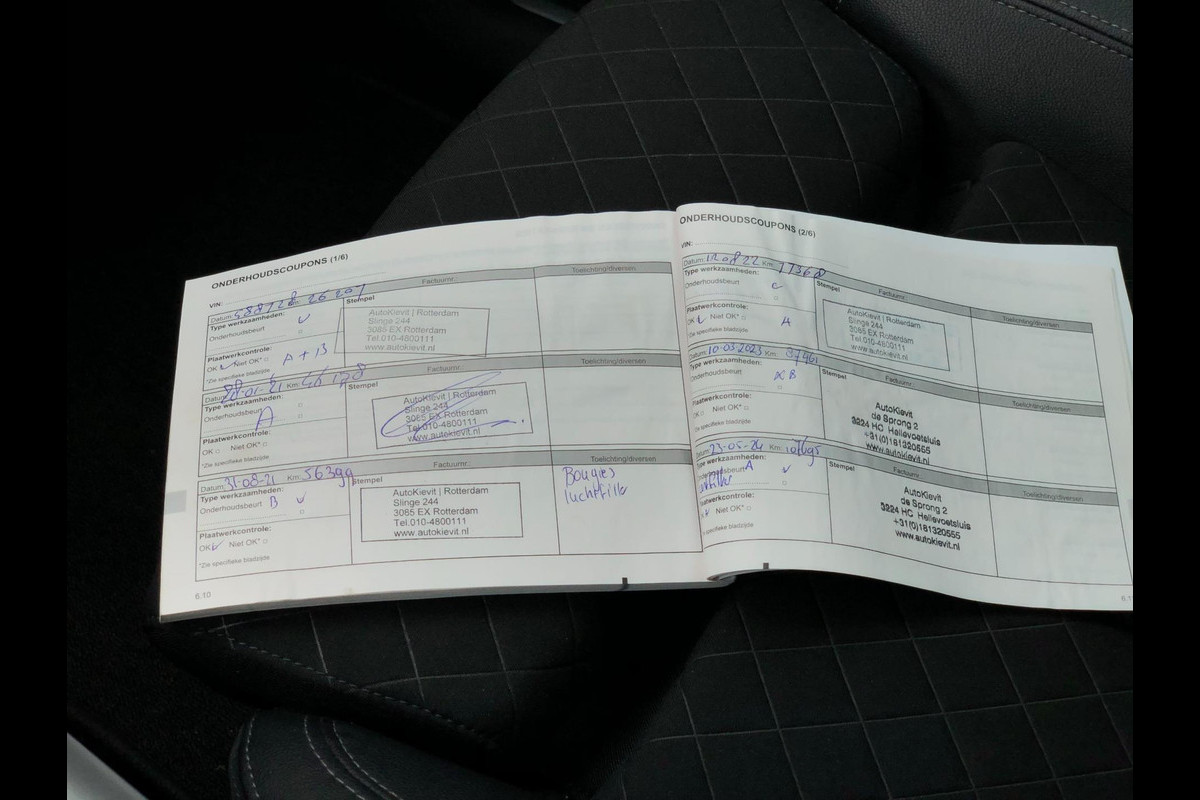 ONDERHOUDSCOUPONS (1/6)
VIN:
Datum: Km: 26207
Factuurnr.:
Toelichting/diversen
Type werkzaamheden:
Onderhoudsbeurt
Plaatwerkcontrole:
OK Niet OK*
A + B
*Zie specifieke bladzijde
Stempel
AutoKievit | Rotterdam
Slinge 244
3085 EX Rotterdam
Tel.010-4800111
www.autokievit.nl
Datum: -01-21 Km:
Factuurnr.:
Toelichting/diversen
Type werkzaamheden:
Onderhoudsbeurt
A
Plaatwerkcontrole:
OK Niet OK*
*Zie specifieke bladzijde
Stempel
AutoKievit | Rotterdam
Slinge 244
3085 EX Rotterdam
Tel.010-4800111
www.autokievit.nl
Datum: 31-08-21 Km: 56399
Factuurnr.:
Toelichting/diversen
Type werkzaamheden:
Onderhoudsbeurt B
Plaatwerkcontrole:
OK Niet OK*
*Zie specifieke bladzijde
Stempel
AutoKievit | Rotterdam
Slinge 244
3085 EX Rotterdam
Tel.010-4800111
www.autokievit.nl
Bougies
luchtfilter
6.10
ONDERHOUDSCOUPONS (2/6)
VIN:
Datum: Km: 77368
Factuurnr.:
Toelichting/diversen
Type werkzaamheden:
Onderhoudsbeurt
Plaatwerkcontrole:
OK Niet OK*
A
*Zie specifieke bladzijde
Stempel
AutoKievit | Rotterdam
Slinge 244
3085 EX Rotterdam
Tel.010-4800111
www.autokievit.nl
Datum: 10-03-2023 Km:
Factuurnr.:
Toelichting/diversen
Type werkzaamheden:
Onderhoudsbeurt
B
Plaatwerkcontrole:
OK Niet OK*
*Zie specifieke bladzijde
Stempel
AutoKievit
de Sprong 2
3224 HC Hellevoetsluis
+31(0)181320555
www.autokievit.nl
Datum: 23-05-24 Km:
Factuurnr.:
Toelichting/diversen
Type werkzaamheden:
Onderhoudsbeurt A
Plaatwerkcontrole:
Niet OK*
specifieke bladzijde
Stempel
AutoKievit
de Sprong 2
3224 HC Hellevoetsluis
+31(0)181320555
www.autokievit.nl